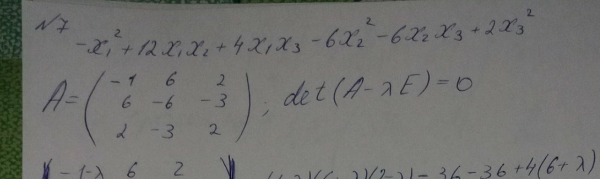 №7
-x₁² + 12x₁x₂ + 4x₁x₃ - 6x₂² - 6x₂x₃ + 2x₃²
A = ( -1 6 2
6 -6 -3
2 -3 2 ) ; det(A - λE) = 0
-1-λ 6 2 )(2-λ) - 36 - 36 + 4(6+λ)